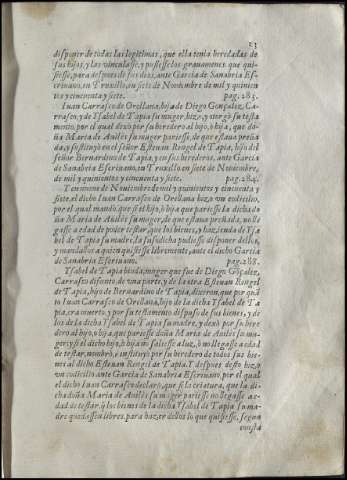 23
disponer de todas las legitimas, que ella tenia heredadas de
sus hijos, y las vinculasse, y pusiesse los grauamenes que qui-
siesse, para despues de sus dias, ante Garcia de Sanabria Es-
criuano, en Truxillo, en siete de Nouiembre de mil y quinien
tos y cincuenta y siete. pag. 283.
Iuan Carrasco de Orellana, hijo de Diego Gonçalez, Ca-
rrasco, y de Ysabel de Tapia su muger, hizo, y otorgò su testa
mento, por el qual dexò por su heredero al hijo, ò hija, que do-
ña Maria de Auilès su muger pariesse, de que estaua preña
da, y sostituyò en el señor Esteuan Rengel de Tapia, hijo del
señor Bernardino de Tapia, y en sus herederos, ante Garcia
de Sanabria Escriuano, en Truxillo en siete de Nouiembre,
de mil y quinientos y cincuenta y siete. pag. 284.
Y en nueue de Nouiembre de mil y quinientos y cincuenta y
siete, el dicho Iuan Carrasco de Orellana hizo, un codicilio,
por el qual mandò, que si el hijo, ò hija que pariesse la dicha do
ña Maria de Auilès su muger, de que estaua preñada, no lle
gasse a edad de poder testar, que los bienes, y hazienda de Ysa
bel de Tapia su madre, la susodicha pudiesse disponer dellos,
y mandallos a quien quisiesse libremente, ante el dicho Garcia
de Sanabria Escriuano. pag. 288.
Ysabel de Tapia biuda, muger que fue de Diego Gonçalez,
Carrasco difunto, de una parte, y de la otra Esteuan Rengel
de Tapia, hijo de Bernardino de Tapia, dixeron, que por quã
to Iuan Carrasco de Orellana, hijo de la dicha Ysabel de Ta
pia, era muerto, y por su testamento dispuso de sus bienes, y de
los de la dicha Ysabel de Tapia su madre, y dexò por su here
dero al hijo, ò hija, que pariesse doña Maria de Auilès su mu-
ger; y si el dicho hijo, ò hija no saliesse a luz, ò no llegasse a edad
de testar, nombrò, e instituyò por su heredero de todos sus bie
nes al dicho Esteuan Rengel de Tapia. Y despues desto hizo,
vn codicilio ante Garcia de Sanabria Escriuano, por el qual
el dicho Iuan Carrasco declarò, que si la criatura, que la di-
cha doña Maria de Auilès su muger pariesse no llegasse a e-
dad de testar, q̃ los bienes de la dicha Ysabel de Tapia su ma-
dre quedassen libres, para hazer dellos lo que quisiesse, segun
consta